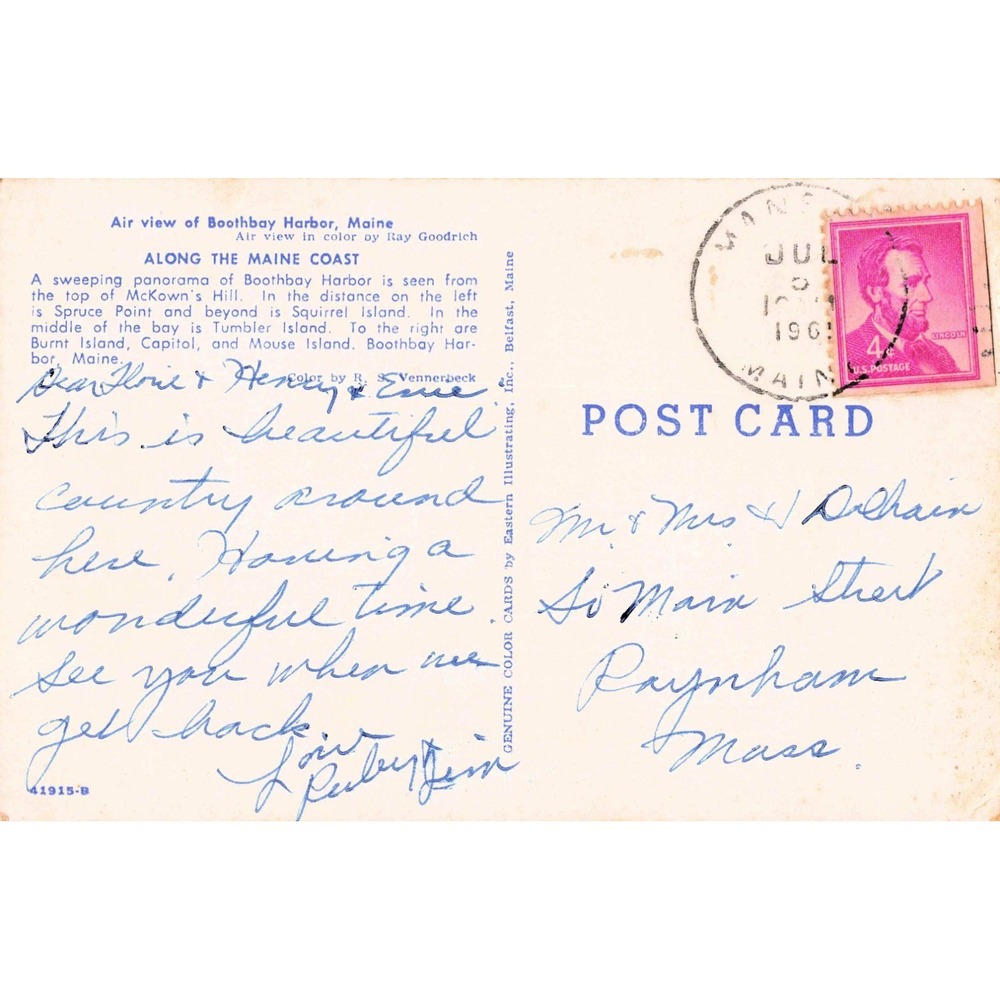 Air view of Boothbay Harbor, Maine
Air view in color by Ray Goodrich
ALONG THE MAINE COAST
A sweeping panorama of Boothbay Harbor is seen from
the top of McKown's Hill. In the distance on the left
is Spruce Point and beyond is Squirrel Island. In the
middle of the bay is Tumbler Island. To the right are
Burnt Island, Capitol, and Mouse Island. Boothbay Har-
bor, Maine.
Color by R. S. Vennerbeck
Dear & Henry &
This is beautiful
country around
here. Having a
wonderful time.
See you when we
get back
Love
Ruby & Jim
41915-B
GENUINE COLOR CARDS by Eastern Illustrating, Inc., Belfast, Maine
JUL
5
196
MAINE
LINCOLN
4¢
U.S. POSTAGE
POST CARD
Mr. & Mrs H
So Main Street
Raynham
Mass.